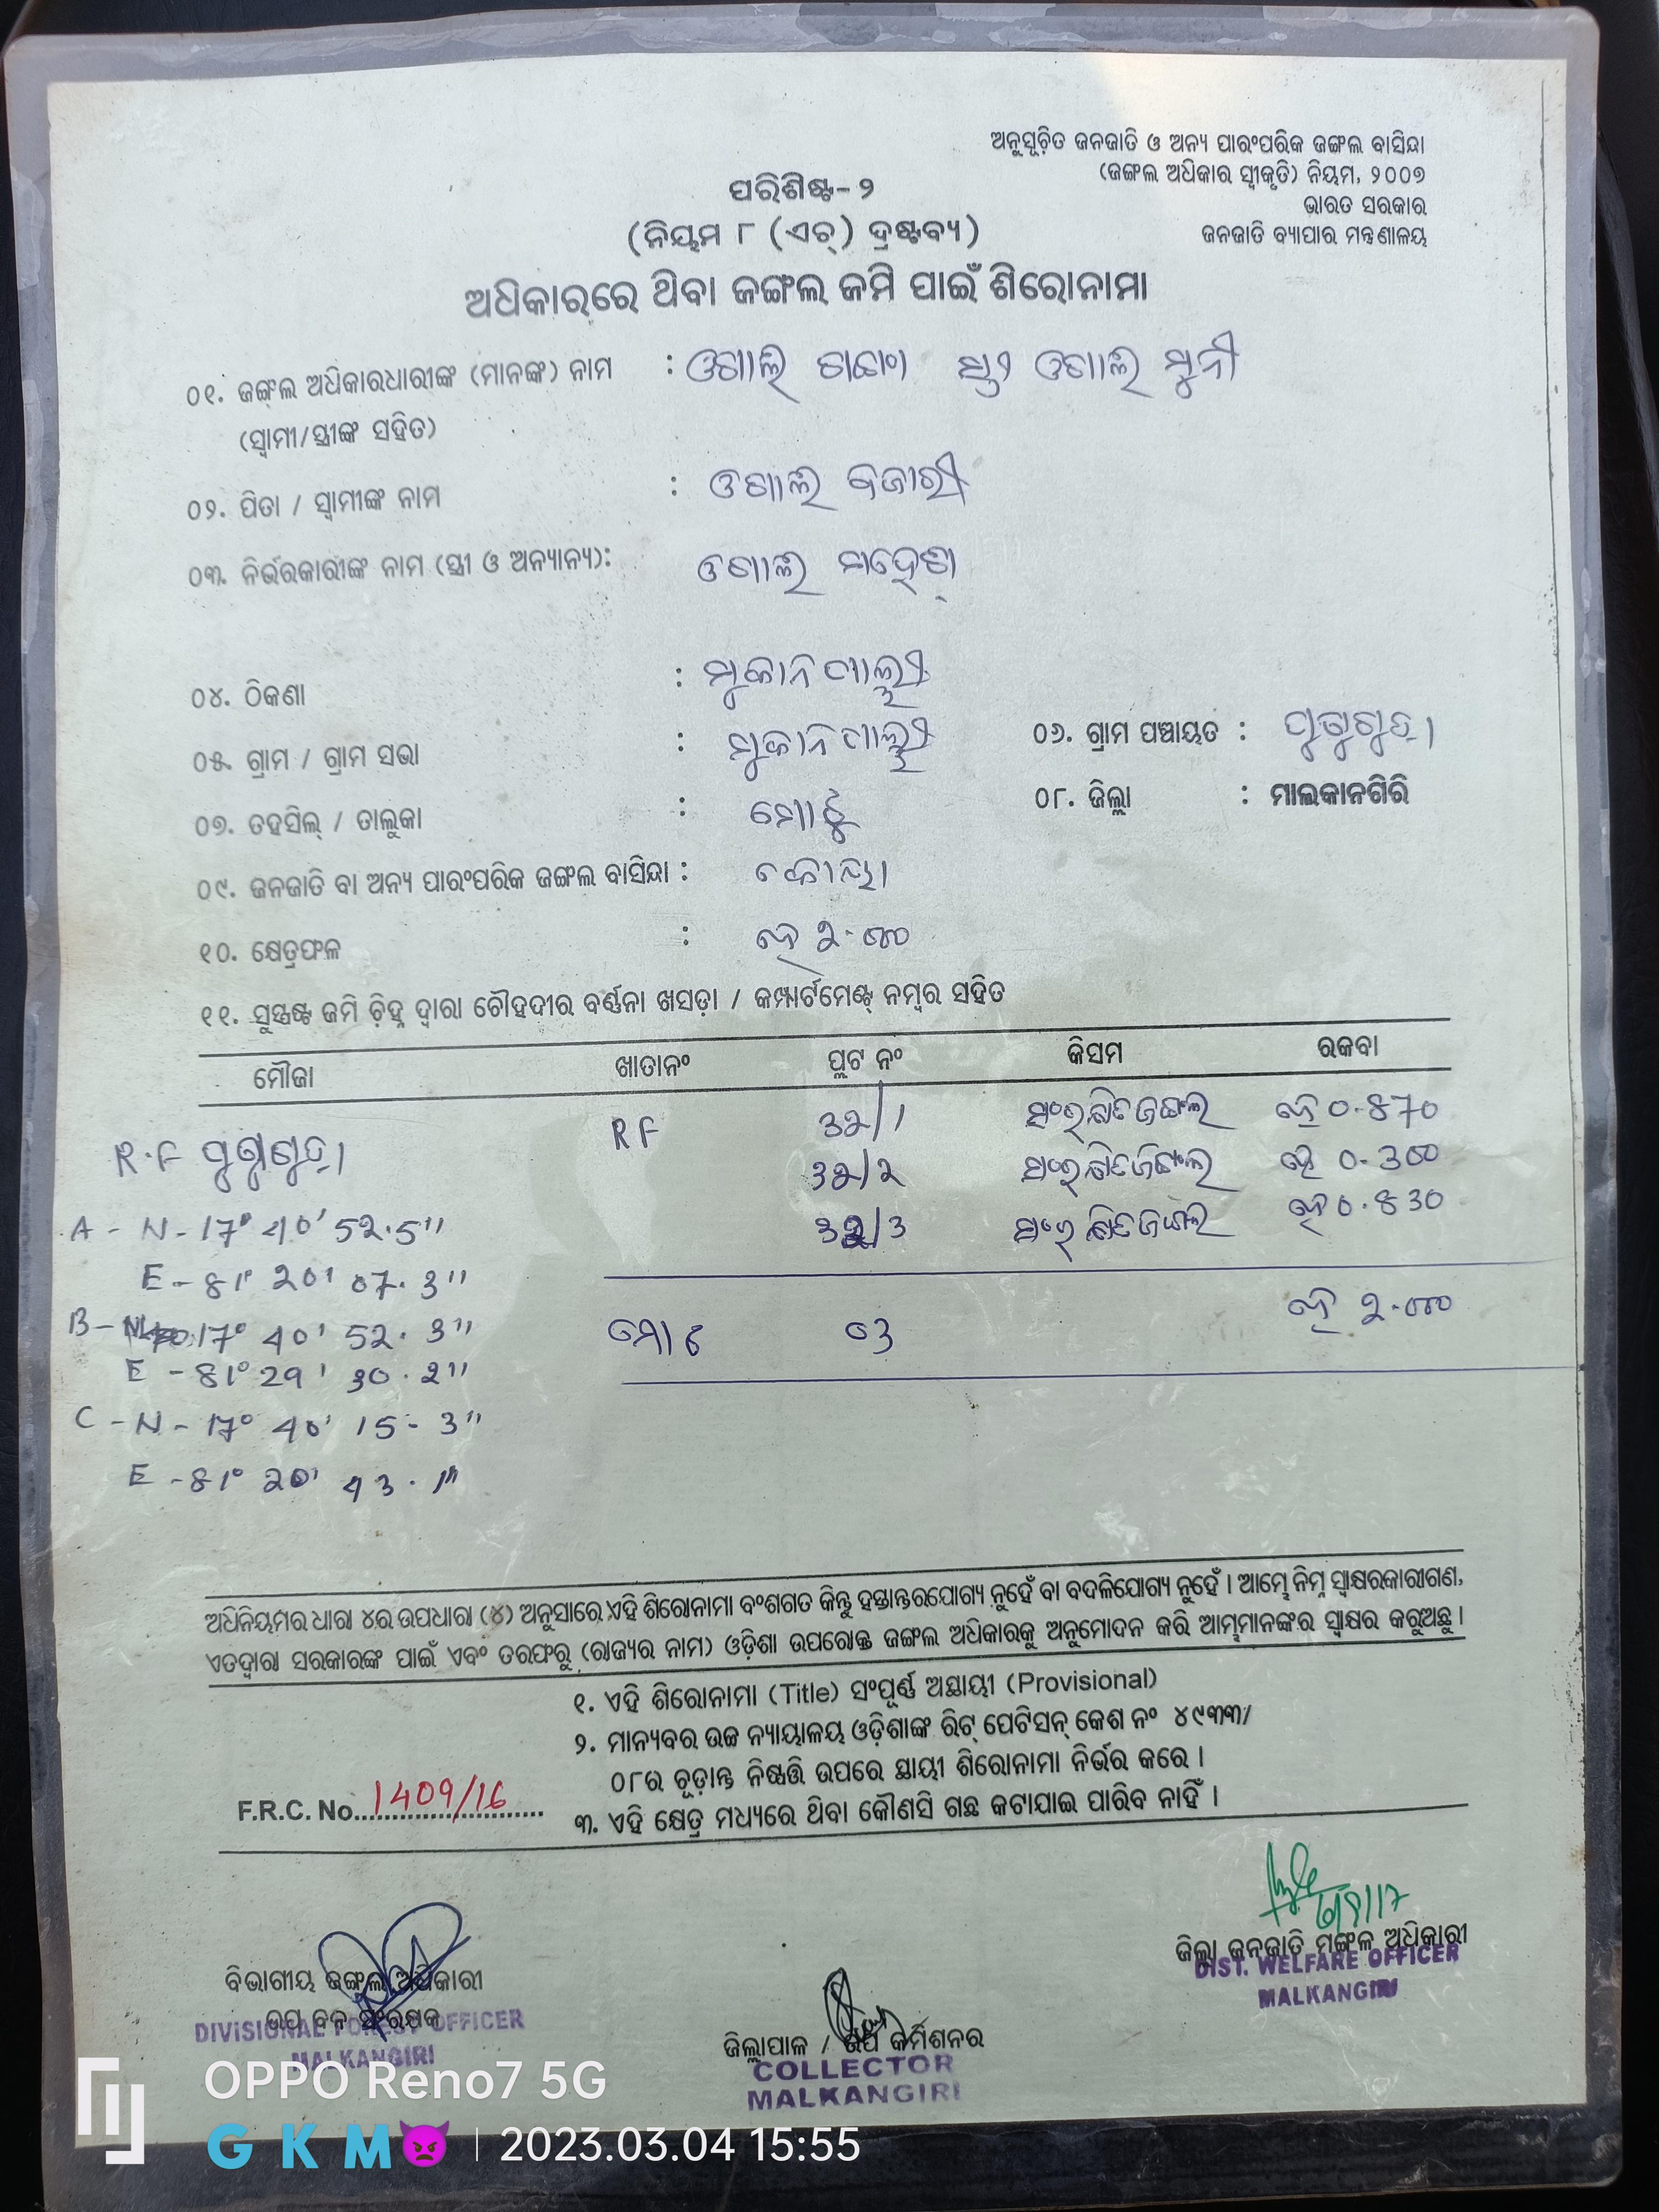 ଅନୁସୂଚିତ ଜନଜାତି ଓ ଅନ୍ୟ ପାରଂପରିକ ଜଙ୍ଗଲ ବାସିନ୍ଦା
(ଜଙ୍ଗଲ ଅଧିକାର ସ୍ୱୀକୃତି) ନିୟମ, ୨୦୦୭
ଭାରତ ସରକାର
ଜନଜାତି ବ୍ୟାପାର ମନ୍ତ୍ରଣାଳୟ
ପରିଶିଷ୍ଟ-୨
(ନିୟମ ୮ (ଏଚ୍) ଦ୍ରଷ୍ଟବ୍ୟ)
ଅଧିକାରରେ ଥିବା ଜଙ୍ଗଲ ଜମି ପାଇଁ ଶିରୋନାମା
୦୧. ଜଙ୍ଗଲ ଅଧିକାରଧାରୀଙ୍କ (ମାନଙ୍କ) ନାମ :
(ସ୍ୱାମୀ/ସ୍ତ୍ରୀଙ୍କ ସହିତ)
୦୨. ପିତା / ସ୍ୱାମୀଙ୍କ ନାମ :
୦୩. ନିର୍ଭରକାରୀଙ୍କ ନାମ (ସ୍ତ୍ରୀ ଓ ଅନ୍ୟାନ୍ୟ):
୦୪. ଠିକଣା :
୦୫. ଗ୍ରାମ / ଗ୍ରାମ ସଭା : ୦୬. ଗ୍ରାମ ପଞ୍ଚାୟତ :
୦୭. ତହସିଲ୍ / ତାଲୁକା : ମୋଟୁ ୦୮. ଜିଲ୍ଲା : ମାଲକାନଗିରି
୦୯. ଜନଜାତି ବା ଅନ୍ୟ ପାରଂପରିକ ଜଙ୍ଗଲ ବାସିନ୍ଦା : କୋୟା
୧୦. କ୍ଷେତ୍ରଫଳ : ହେ 2.000
୧୧. ସୁସ୍ପଷ୍ଟ ଜମି ଚିହ୍ନ ଦ୍ୱାରା ଚୌହଦୀର ବର୍ଣ୍ଣନା ଖସଡ଼ା / କମ୍ପାର୍ଟମେଣ୍ଟ୍ ନମ୍ବର ସହିତ
ମୌଜା ଖାତାନଂ ପ୍ଲଟ ନଂ କିସମ ରକବା
RF 32/1 ସଂରକ୍ଷିତ ଜଙ୍ଗଲ ହେ 0.870
R.F 32/2 ସଂରକ୍ଷିତ ଜଙ୍ଗଲ ହେ 0.300
A - N - 17° 40' 52.5" 32/3 ସଂରକ୍ଷିତ ଜଙ୍ଗଲ ହେ 0.830
E - 81° 20' 07.3"
B - 17° 40' 52.3" ମୋଟ 03 ହେ 2.000
E - 81° 29' 30.2"
C - N - 17° 40' 15-3"
E - 81° 20' 43.1"
ଅଧିନିୟମର ଧାରା ୪ର ଉପଧାରା (୪) ଅନୁସାରେ ଏହି ଶିରୋନାମା ବଂଶଗତ କିନ୍ତୁ ହସ୍ତାନ୍ତରଯୋଗ୍ୟ ନୁହେଁ ବା ବଦଳିଯୋଗ୍ୟ ନୁହେଁ । ଆମ୍ଭେ ନିମ୍ନ ସ୍ୱାକ୍ଷରକାରୀଗଣ,
ଏତଦ୍ୱାରା ସରକାରଙ୍କ ପାଇଁ ଏବଂ ତରଫରୁ (ରାଜ୍ୟର ନାମ) ଓଡ଼ିଶା ଉପରୋକ୍ତ ଜଙ୍ଗଲ ଅଧିକାରକୁ ଅନୁମୋଦନ କରି ଆମ୍ଭମାନଙ୍କର ସ୍ୱାକ୍ଷର କରୁଅଛୁ ।
୧. ଏହି ଶିରୋନାମା (Title) ସଂପୂର୍ଣ୍ଣ ଅସ୍ଥାୟୀ (Provisional)
୨. ମାନ୍ୟବର ଉଚ୍ଚ ନ୍ୟାୟାଳୟ ଓଡ଼ିଶାଙ୍କ ରିଟ୍ ପେଟିସନ୍ କେଶ ନଂ ୪୯୩୩/
୦୮ର ଚୂଡ଼ାନ୍ତ ନିଷ୍ପତ୍ତି ଉପରେ ସ୍ଥାୟୀ ଶିରୋନାମା ନିର୍ଭର କରେ ।
F.R.C. No. 1409/16
୩. ଏହି କ୍ଷେତ୍ର ମଧ୍ୟରେ ଥିବା କୌଣସି ଗଛ କଟାଯାଇ ପାରିବ ନାହିଁ ।
ଜିଲ୍ଲା ଜନଜାତି ମଙ୍ଗଳ ଅଧିକାରୀ
DIST. WELFARE OFFICER
MALKANGIRI
ବିଭାଗୀୟ ଜଙ୍ଗଲ ଅଧିକାରୀ
ଉପ ବନ ସଂରକ୍ଷକ
DIVISIONAL FOREST OFFICER
MALKANGIRI
ଜିଲ୍ଲାପାଳ / ଉପ କମିଶନର
COLLECTOR
MALKANGIRI
OPPO Reno7 5G
G K M | 2023.03.04 15:55